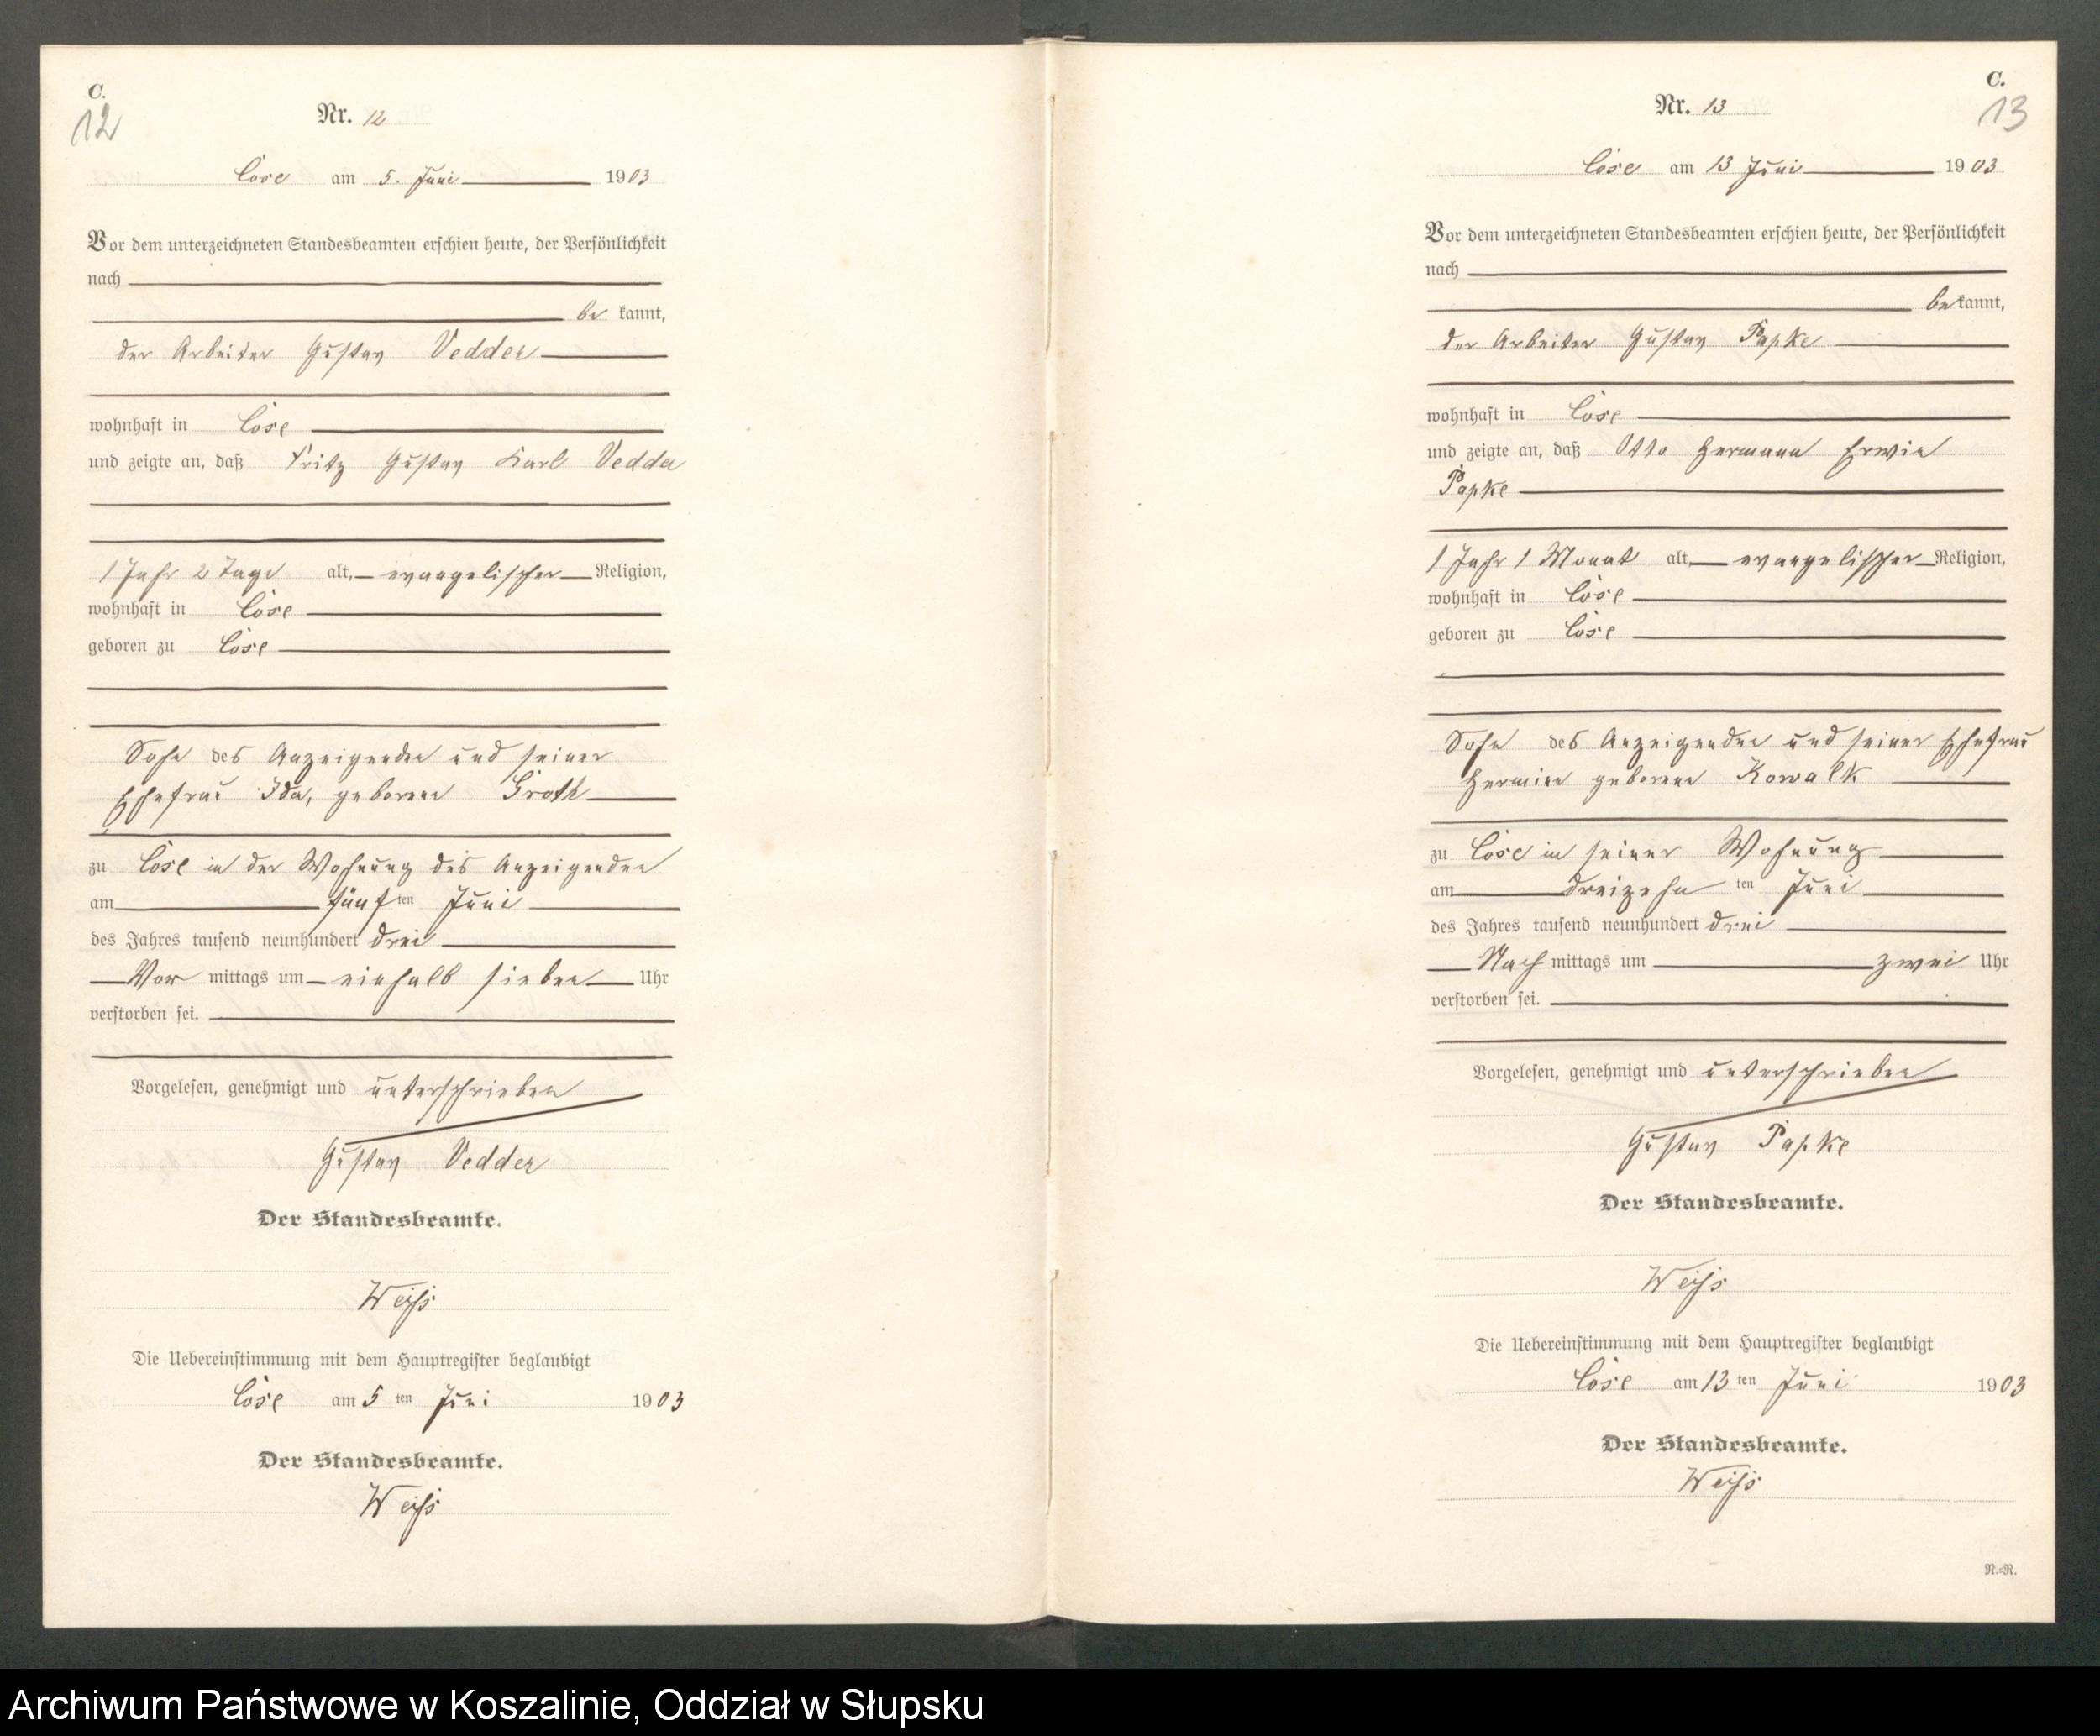 C.
12
Nr. 12
Cose am 5. Juni 1903
Vor dem unterzeichneten Standesbeamten erschien heute, der Persönlichkeit
nach
be kannt,
der Arbeiter Gustav Vedder
wohnhaft in Cose
und zeigte an, daß Fritz Gustav Karl Vedder
1 Jahr 2 Tage alt, evangelischer Religion,
wohnhaft in Cose
geboren zu Cose
Sohn des Anzeigenden und seiner
Ehefrau Ida, geborene Groth
zu Cose in der Wohnung des Anzeigenden
am fünf ten Juni
des Jahres tausend neunhundert drei
Vor mittags um einhalb sieben Uhr
verstorben sei.
Vorgelesen, genehmigt und unterschrieben
Gustav Vedder
Der Standesbeamte.
Weiß
Die Uebereinstimmung mit dem Hauptregister beglaubigt
Cose am 5 ten Juni 1903
Der Standesbeamte.
Weiß
C.
13
Nr. 13
Cose am 13 Juni 1903
Vor dem unterzeichneten Standesbeamten erschien heute, der Persönlichkeit
nach
be kannt,
der Arbeiter Gustav Papke
wohnhaft in Cose
und zeigte an, daß Otto Hermann Erwin
Papke
1 Jahr 1 Monat alt, evangelischer Religion,
wohnhaft in Cose
geboren zu Cose
Sohn des Anzeigenden und seiner Ehefrau
Hermine geborene Kowalk
zu Cose in seiner Wohnung
am dreizehn ten Juni
des Jahres tausend neunhundert drei
Nach mittags um zwei Uhr
verstorben sei.
Vorgelesen, genehmigt und unterschrieben
Gustav Papke
Der Standesbeamte.
Weiß
Die Uebereinstimmung mit dem Hauptregister beglaubigt
Cose am 13 ten Juni 1903
Der Standesbeamte.
Weiß
N.=N.
Archiwum Państwowe w Koszalinie, Oddział w Słupsku